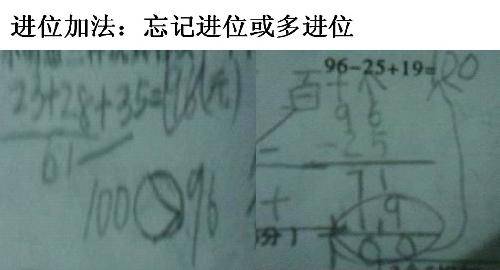 进位加法：忘记进位或多进位
23+28+35=96(元)
61
100>96
96-25+19=100
百十个
96
-25
71
+19
100
分）